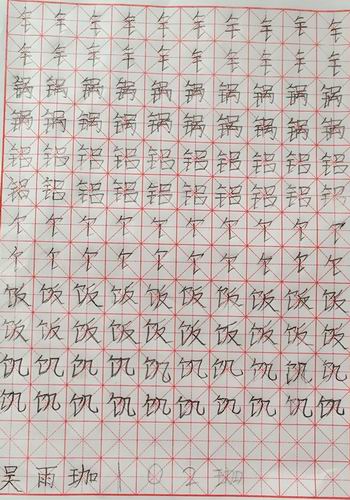 钅钅钅钅钅钅钅钅钅
钅钅钅钅钅钅钅钅钅
锅锅锅锅锅锅锅锅锅
锅锅锅锅锅锅锅锅锅
铝铝铝铝铝铝铝铝铝
铝铝铝铝铝铝铝铝铝
饣饣饣饣饣饣饣饣饣
饣饣饣饣饣饣饣饣饣
饭饭饭饭饭饭饭饭饭
饭饭饭饭饭饭饭饭饭
饥饥饥饥饥饥饥饥饥
饥饥饥饥饥饥饥饥饥
吴雨珈 1 0 2